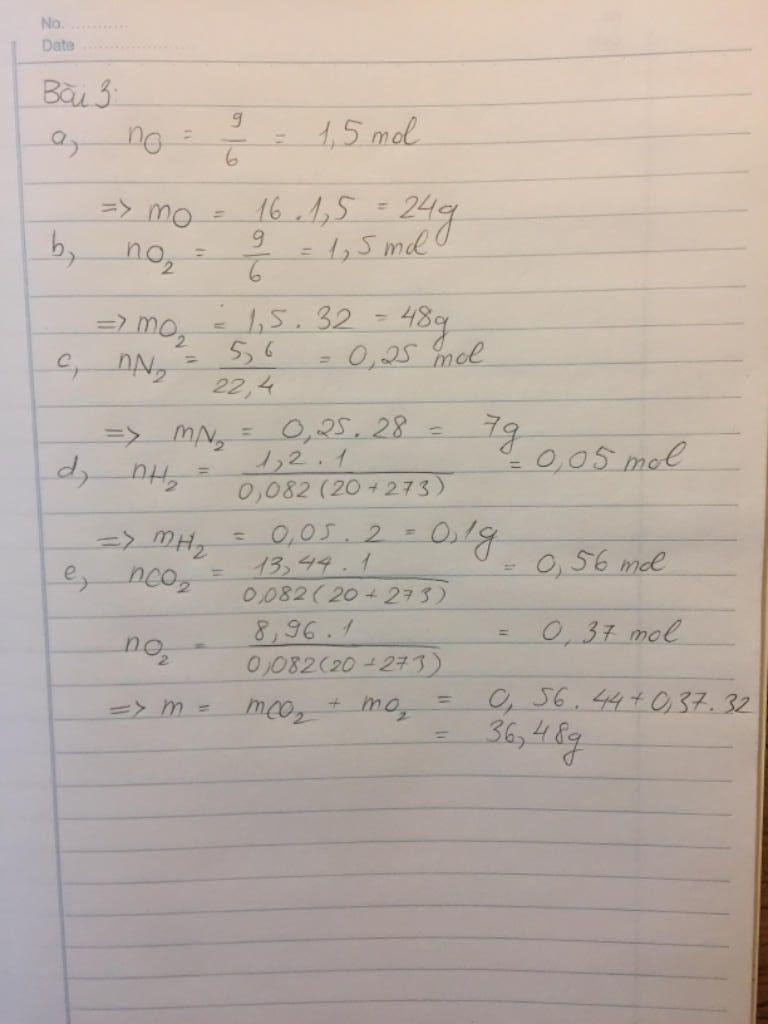 No. ...........
Date ......................
Bài 3:
a, nO = 9/6 = 1,5 mol
=> mO = 16 . 1,5 = 24g
b, nO₂ = 9/6 = 1,5 mol
=> mO₂ = 1,5 . 32 = 48g
c, nN₂ = 5,6/22,4 = 0,25 mol
=> mN₂ = 0,25 . 28 = 7g
d, nH₂ = 1,2 . 1/0,082(20+273) = 0,05 mol
=> mH₂ = 0,05 . 2 = 0,1g
e, nCO₂ = 13,44 . 1/0,082(20+273) = 0,56 mol
nO₂ = 8,96 . 1/0,082(20+273) = 0,37 mol
=> m = mCO₂ + mO₂ = 0,56 . 44 + 0,37 . 32
= 36,48g